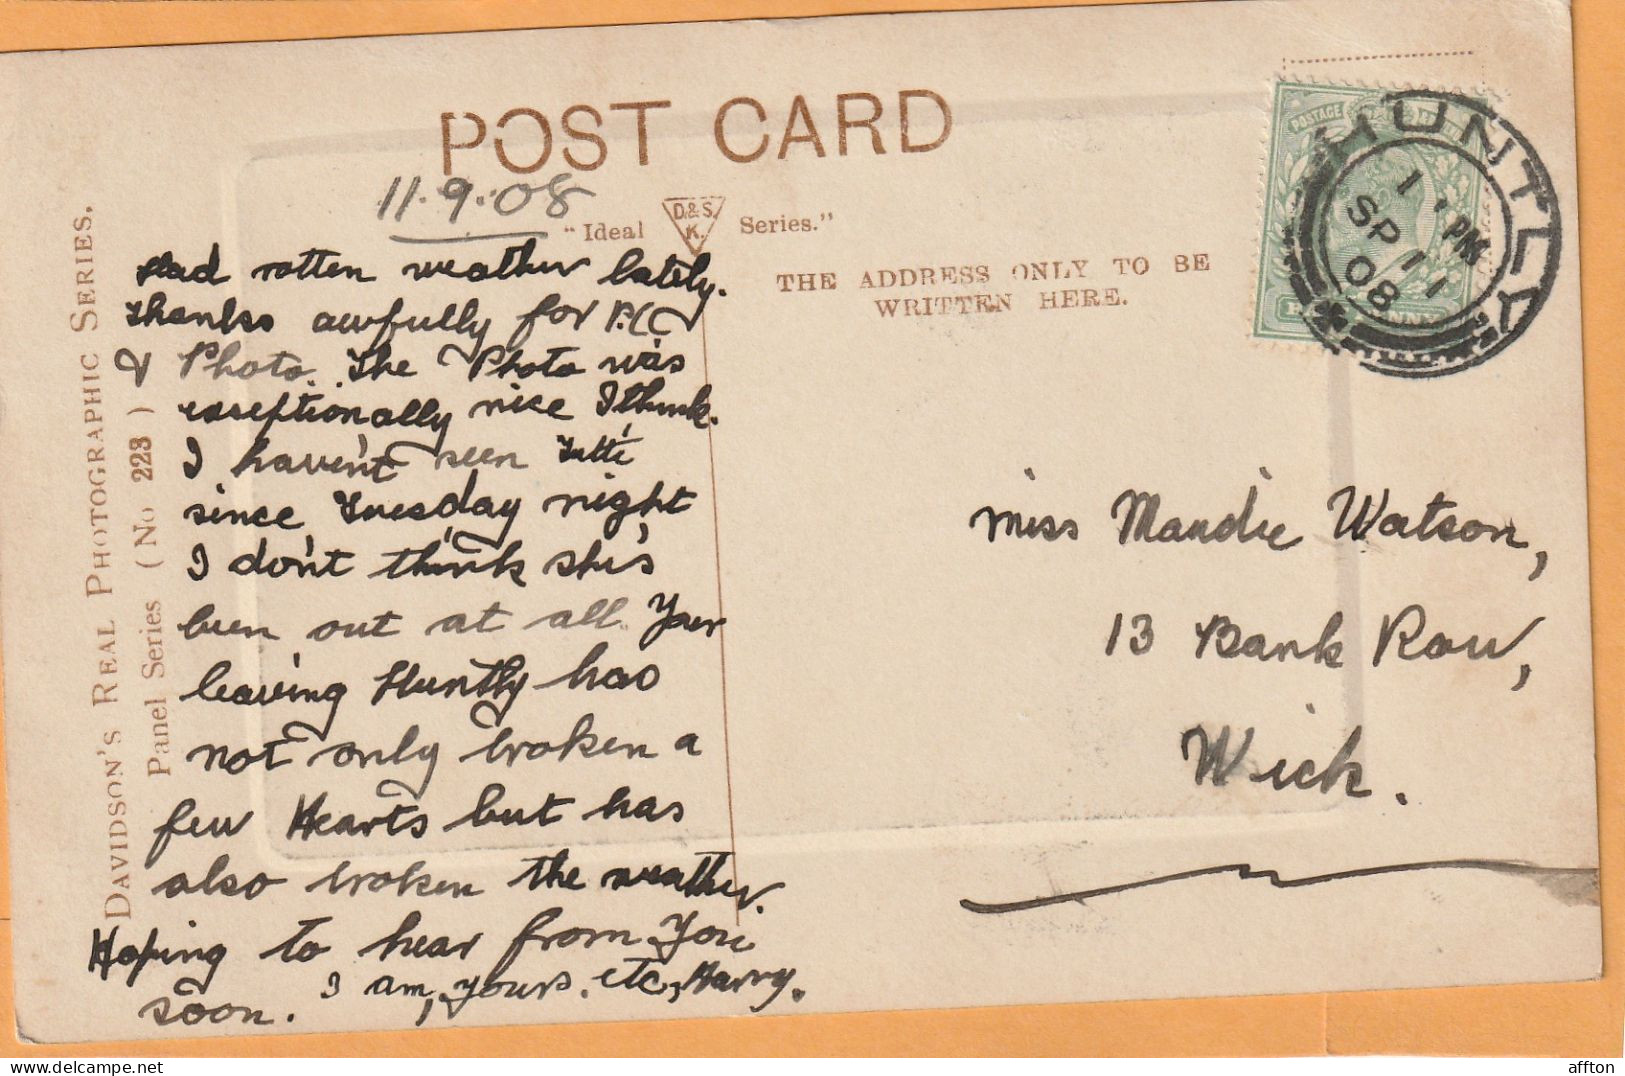 POST CARD
11.9.08
"Ideal D.&S. K. Series."
THE ADDRESS ONLY TO BE
WRITTEN HERE.
DAVIDSON'S REAL PHOTOGRAPHIC SERIES.
Panel Series (No 223)
Had rotten weather lately.
Thanks awfully for P.C
& Photo. The Photo was
exceptionally nice I think.
I haven't seen Tutti
since Tuesday night
I don't think she's
been out at all. Your
leaving Huntly has
not only broken a
few Hearts but has
also broken the weather.
Hoping to hear from You
soon. I am, yours. etc, Harry.
Miss Maudie Watson,
13 Bank Row,
Wick.
POSTAGE
HUNTLY
1 PM
SP 11
08
affton